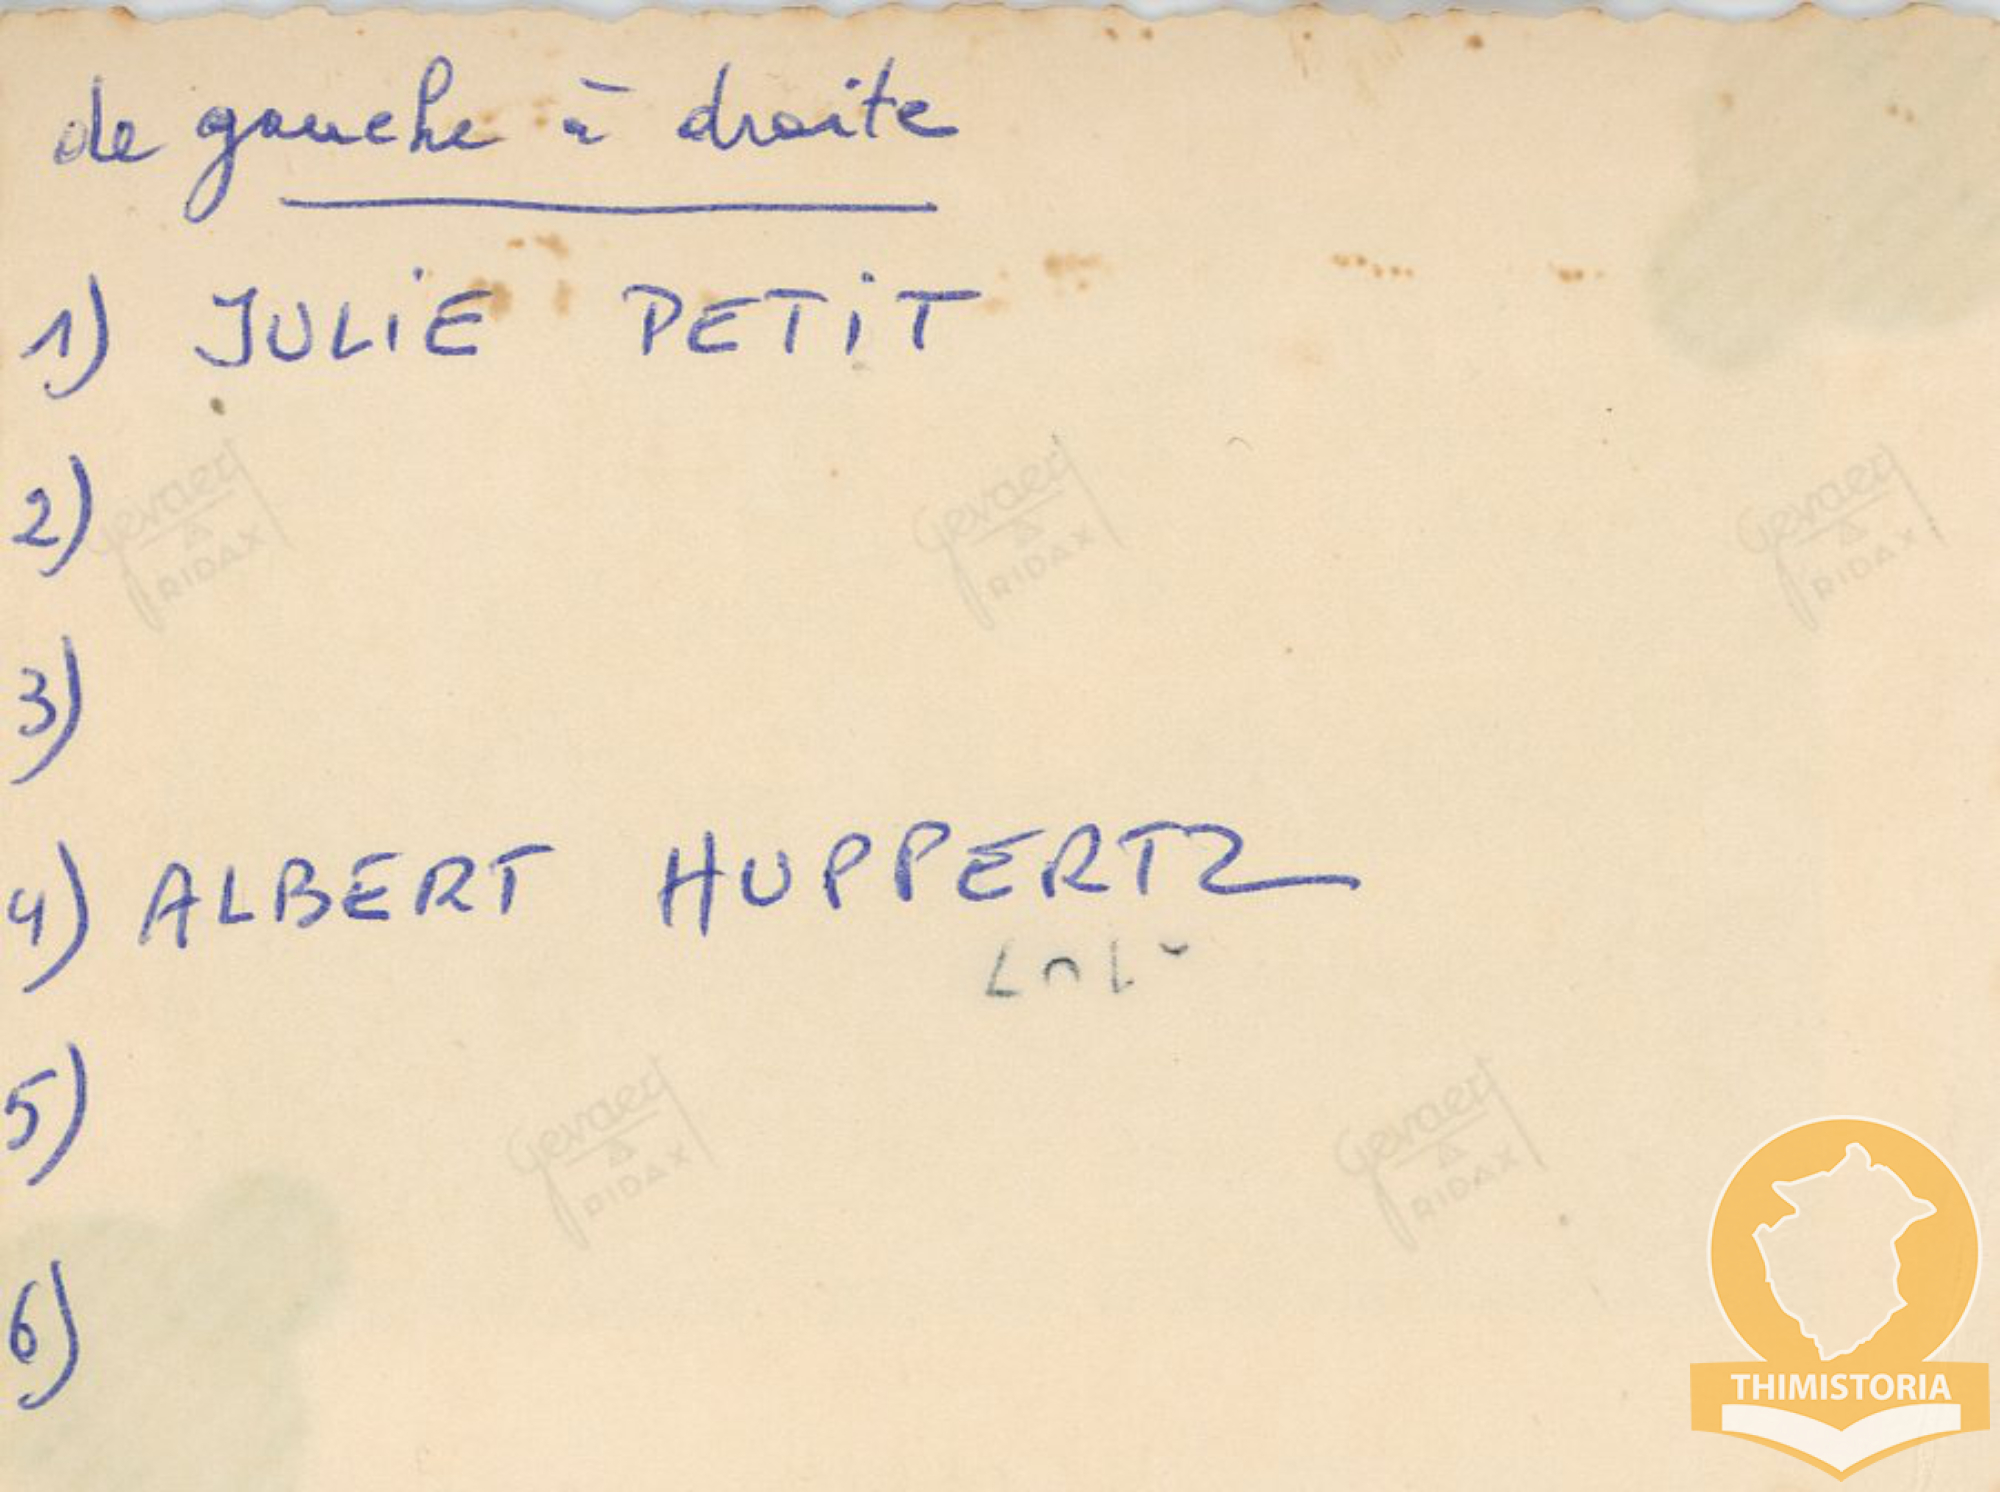 de gauche à droite
1) JULiE PETiT
2)
Gevaert RIDAX
Gevaert RIDAX
Gevaert RIDAX
3)
4) ALBERT HUPPERTZ
5)
Gevaert RIDAX
Gevaert RIDAX
6)
THIMISTORIA